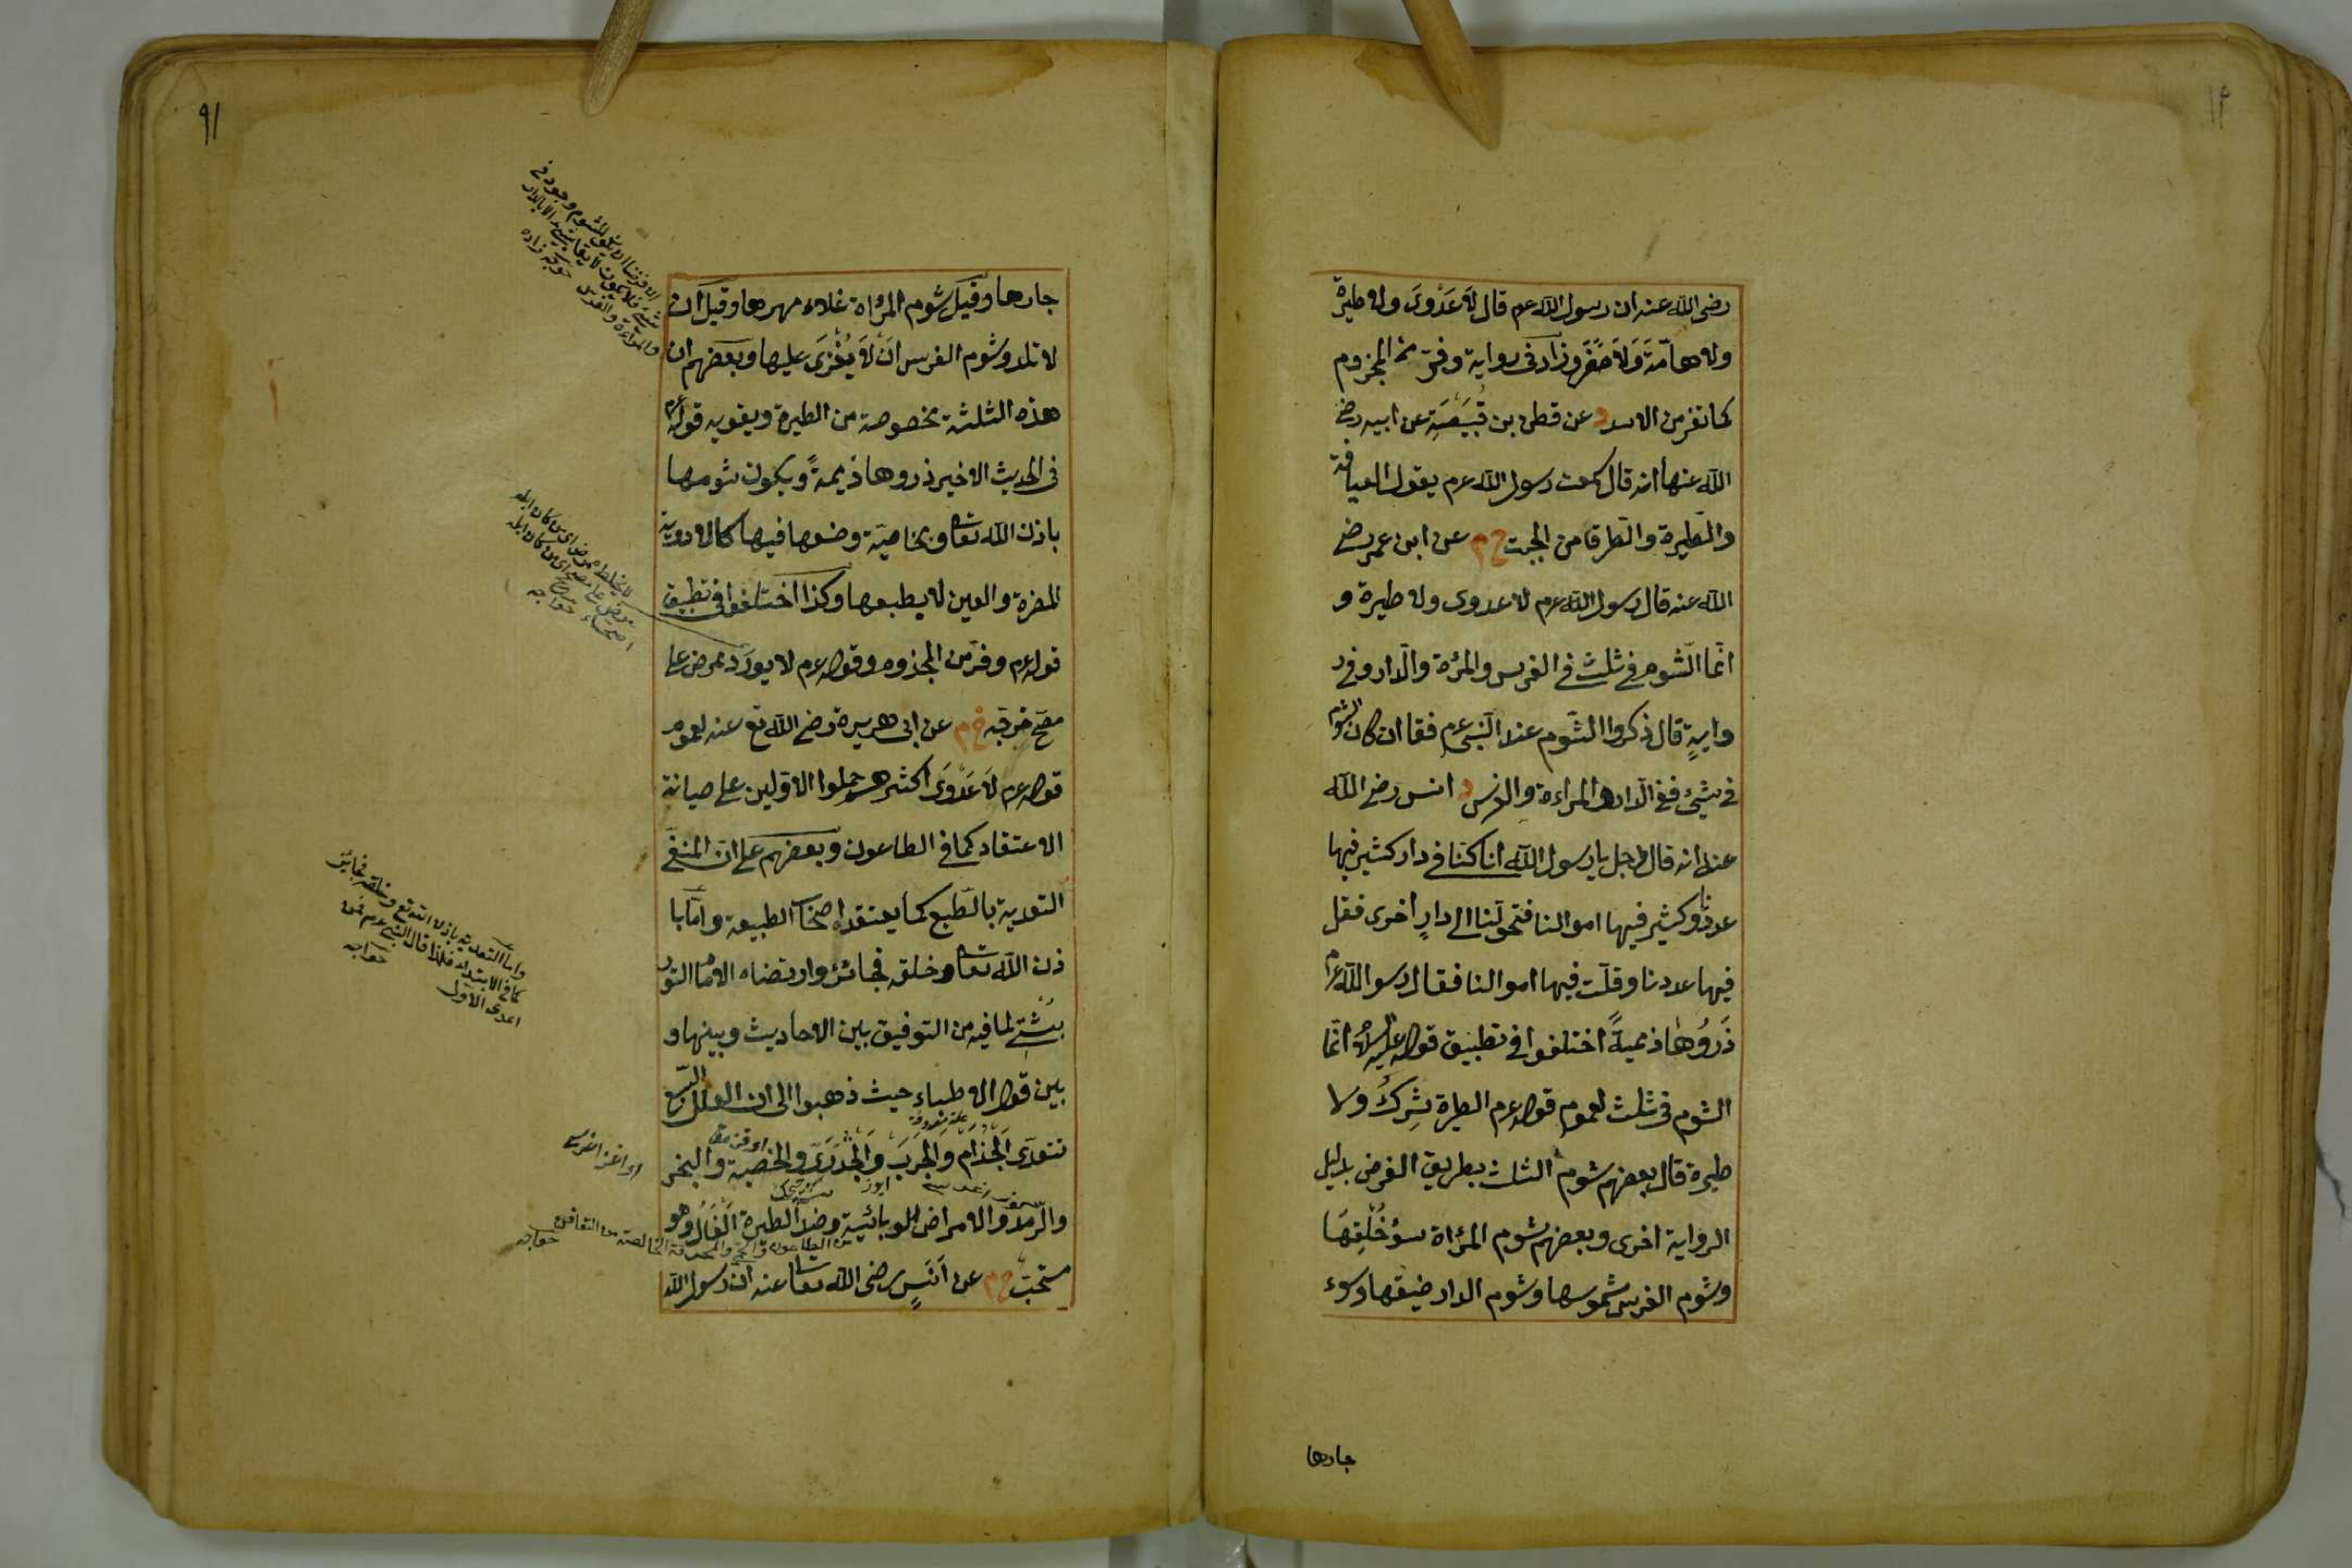 رضى الله عنه ان رسول الله عرم قال لا عَدْوَى ولا طيرة
ولا هامّة وَلا صَفَر وزاد فى رواية وفرّ من المجزوم
كما تفر من الاسد د عن قطن بن قَبِيصَةِ عن ابيه رضى
الله عنهما انه قال سمعت رسول الله عرم يقول العيافة
والطّيرة والطّرق من الجبت خ م عن ابن عمر رضى
الله عنه قال رسول الله عرم لا عدوى ولا طيرة و
انّما الشّوم فى ثلث فى الفرس والمرٔة والدّار وفى ر
وايةٍ قال ذكروا الشّوم عند النّبى عرم فقا ان كان الشوم
فى شيئ ففى الدّار والمراءة والفرس د انس رضى الله
عنه انه قال رجل يا رسول الله انا كنّا فى دار كثير فيها
عددنا وكثير فيها اموالنا فتحوّلنا الى دارٍ اخرى فقل
فيها عددنا وقلّت فيها اموالنا فقال رسوالله عرم
ذَرُوهَا ذميةً اختلفوا فى تطبيق قوله عليه السلام انّما
الشوم فى ثلث لعموم قوله عرم الطيرة شِركٌ ولا
طيرة قال بعضهم شوم الثلث بطريق الفرض بدليل
الرواية اخرى وبعضهم شوم المرٔاة سؤ خُلُقِهَا
وشوم الفرس شموسها وشوم الدار ضيقها وسوء
جارها
٩١
جارها وقيل شوم المرٔاة غلاء مهرها وقيل ان
لا تلد وشوم الفرس ان لا يُغْزَى عليها وبعضهم ان
هذه الثلثة مخصوصة من الطيرة ويقويه قوله عرم
فى الحديث الاخير ذروها ذميمةً ويكون شومها
باذن الله تعا وبخاصيّة وضعها فيها كالادوية
المضرة والعين لا بطبعها وكذا اختلفوا فى تطبيق
قوله عرم وفرّ من المجذوم وقوله عرم لا يورَد ممرض على
مصح خرجه خ م عن ابى هريرة رضى الله تع عنه لعموم
قوله عرم لا عَدْوَى اكثرهم حملوا الاوّلين على صيانة
الاعتقاد كما فى الطاعون وبعضهم على ان المنفى
التعدية بالطّبع كما يعتقده اصحاب الطبيعة وامّا با
ذن الله تعا وخلقه فجائز وارتضاه الامام التّور
بشتى لما فيه من التوفيق بين الاحاديث وبينها و
بين قول الاطباء حيث ذهبوا الى ان العلل السّبع
تتعدّى الجذام والجرب والجدرى والحصبة والبخر
والرّمد والامراض الوبائية وضد الطيرة الفَالُ وهو
مستحبّ خ م عن اَنَسٍ رضى الله تعا عنه ان رسول الله
واما التعدية باذن الله تع وخلقه فجائز
كما فى الابتداء فلذا قال النبى عرم فمن
اعدى الاوّل
خواجه